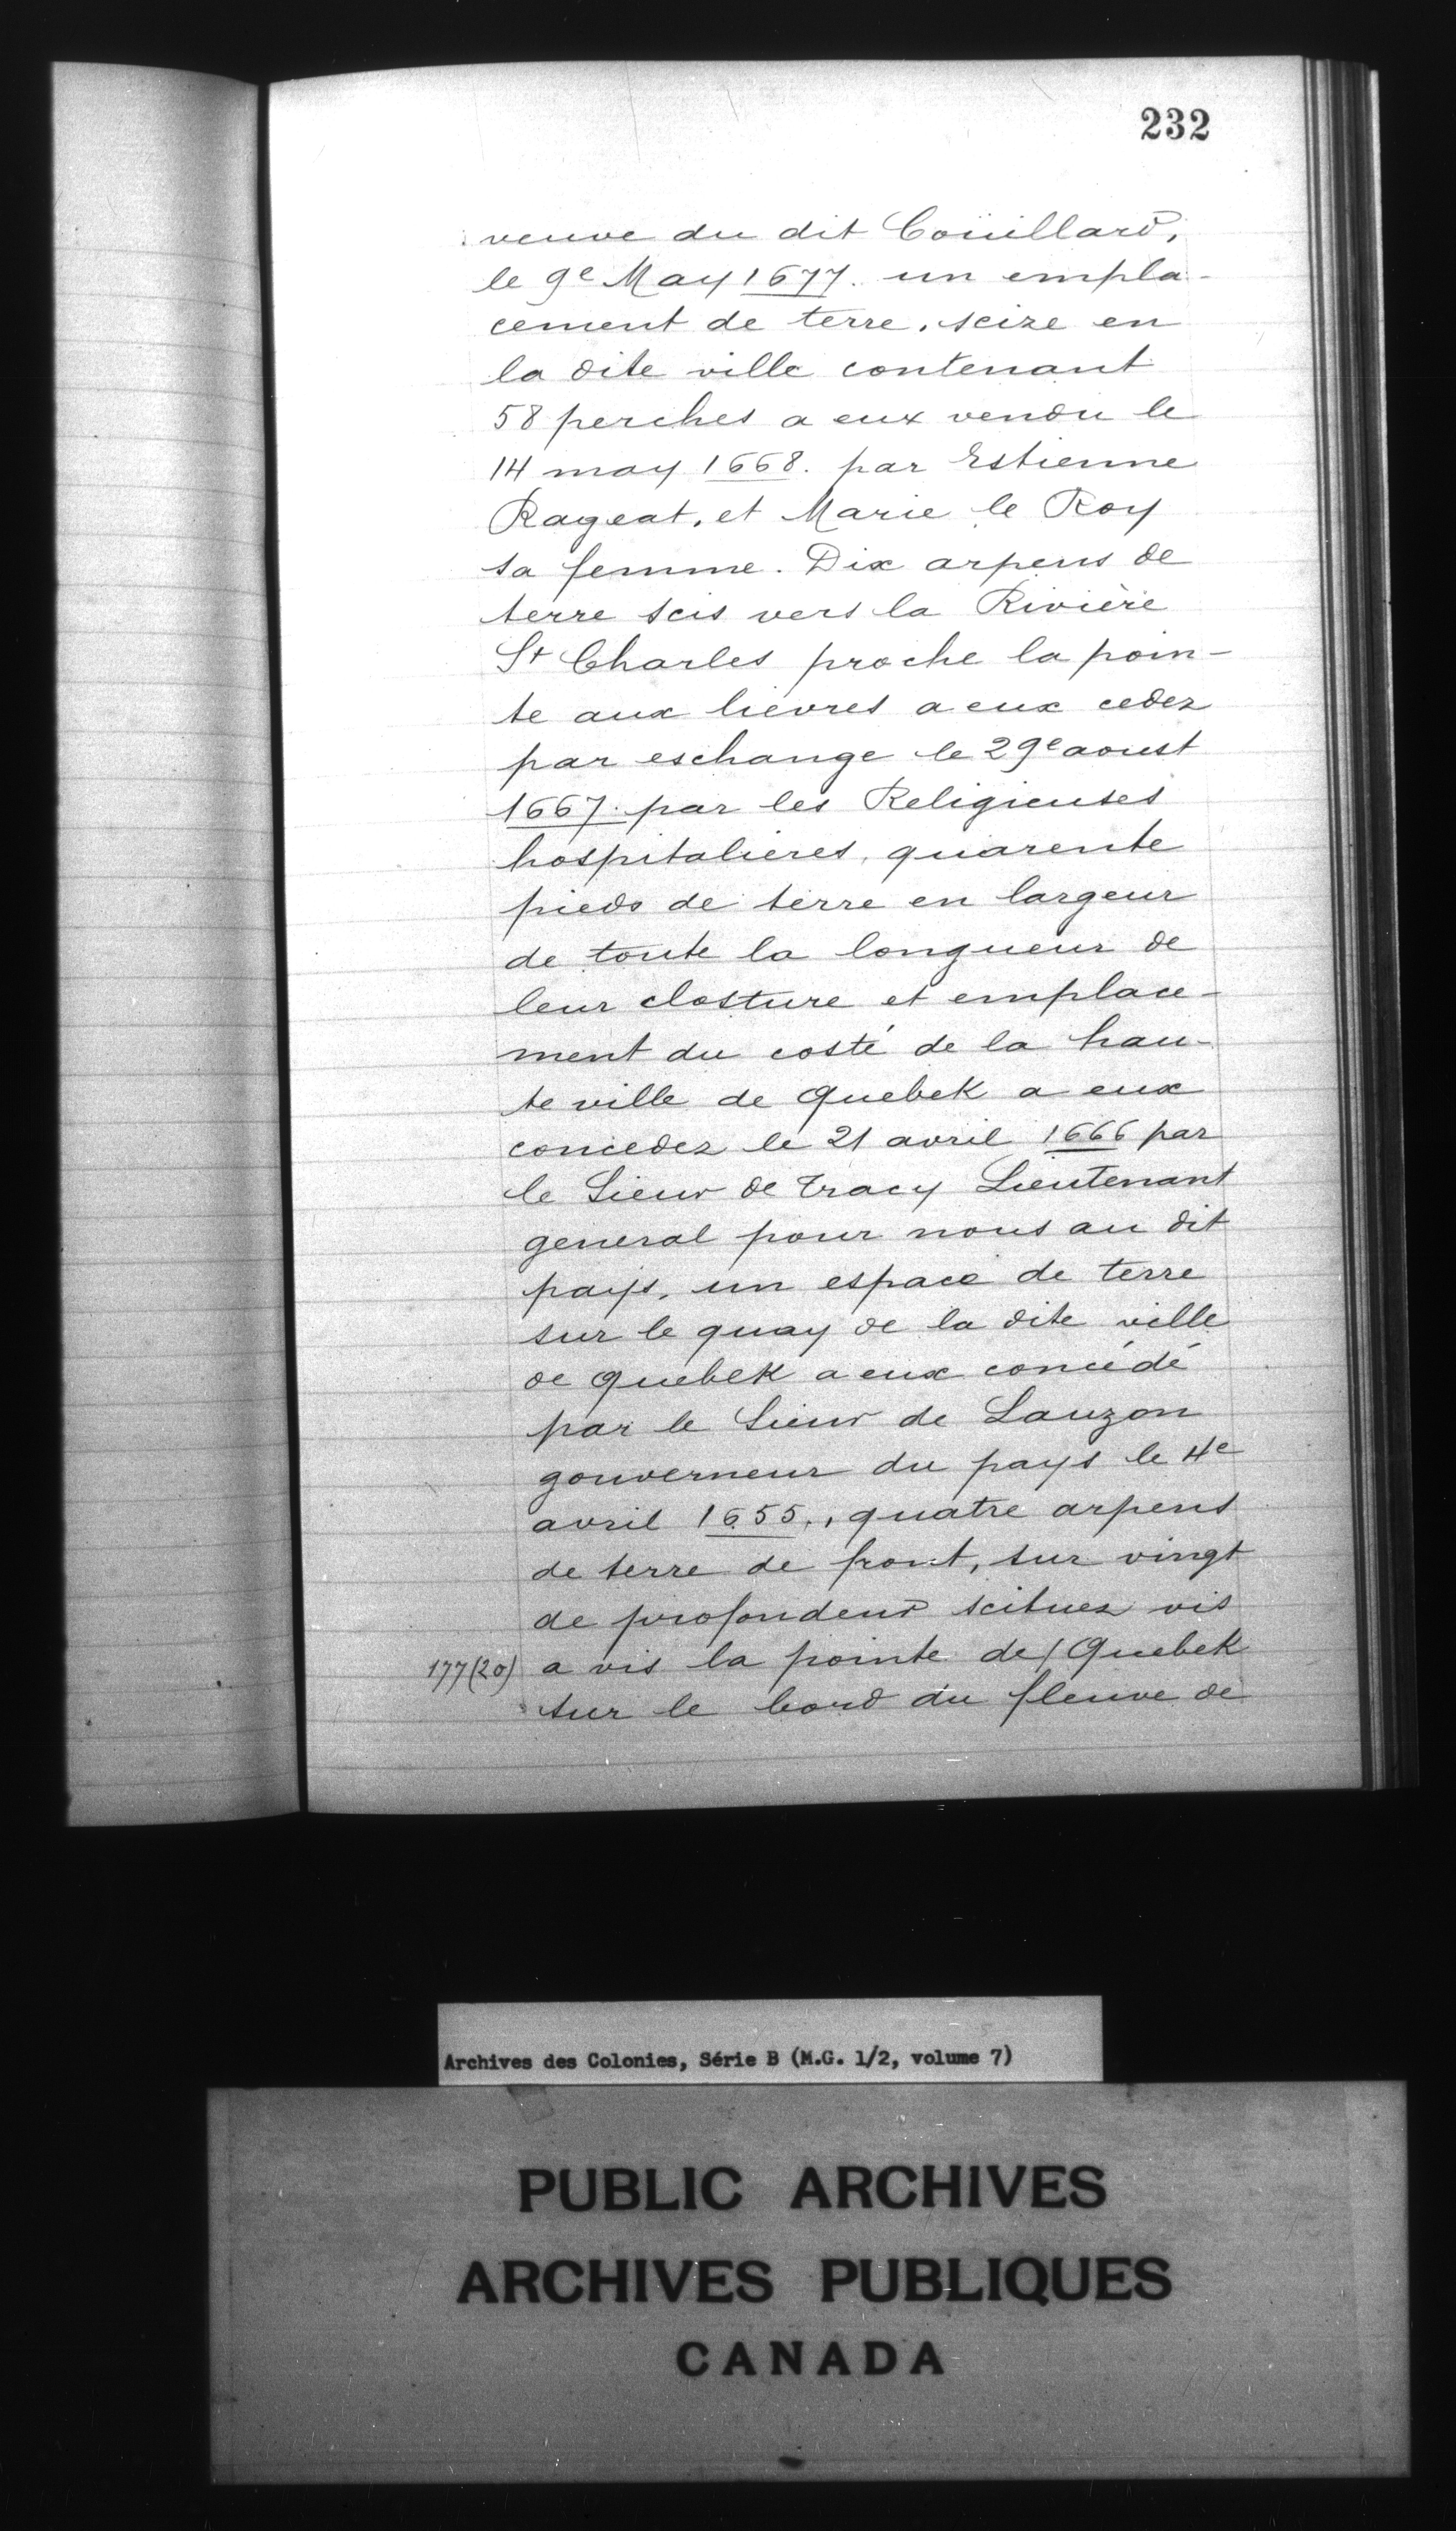 232
veuve du dit Coüillard,
le 9e May 1677. un empla-
cement de terre, seize en
la dite ville contenant
58 perches a eux vendu le
14 may 1668. par Estienne
Rageat, et Marie le Roy
sa femme. Dix arpens de
terre scis vers la Rivière
St Charles proche la poin-
te aux lievres a eux cedez
par eschange le 29e aoust
1667. par les Religieuses
hospitalieres, quarente
pieds de terre en largeur
de toute la longueur de
leur closture et emplace-
ment du costé de la hau-
te ville de Quebek a eux
concedez le 21 avril 1666 par
le Sieur de Tracy Lieutenant
general pour nous au dit
pays, un espace de terre
sur le quay de la dite ville
de Quebek a eux concédé
par le Sieur de Lauzon
gouverneur du pays le 4e
avril 1655., quatre arpens
de terre de front, sur vingt
de profondeur scituez vis
177(20) a vis la pointe de/Quebek
sur le bord du fleuve de
Archives des Colonies, Série B (M.G. 1/2, volume 7)
PUBLIC ARCHIVES
ARCHIVES PUBLIQUES
CANADA